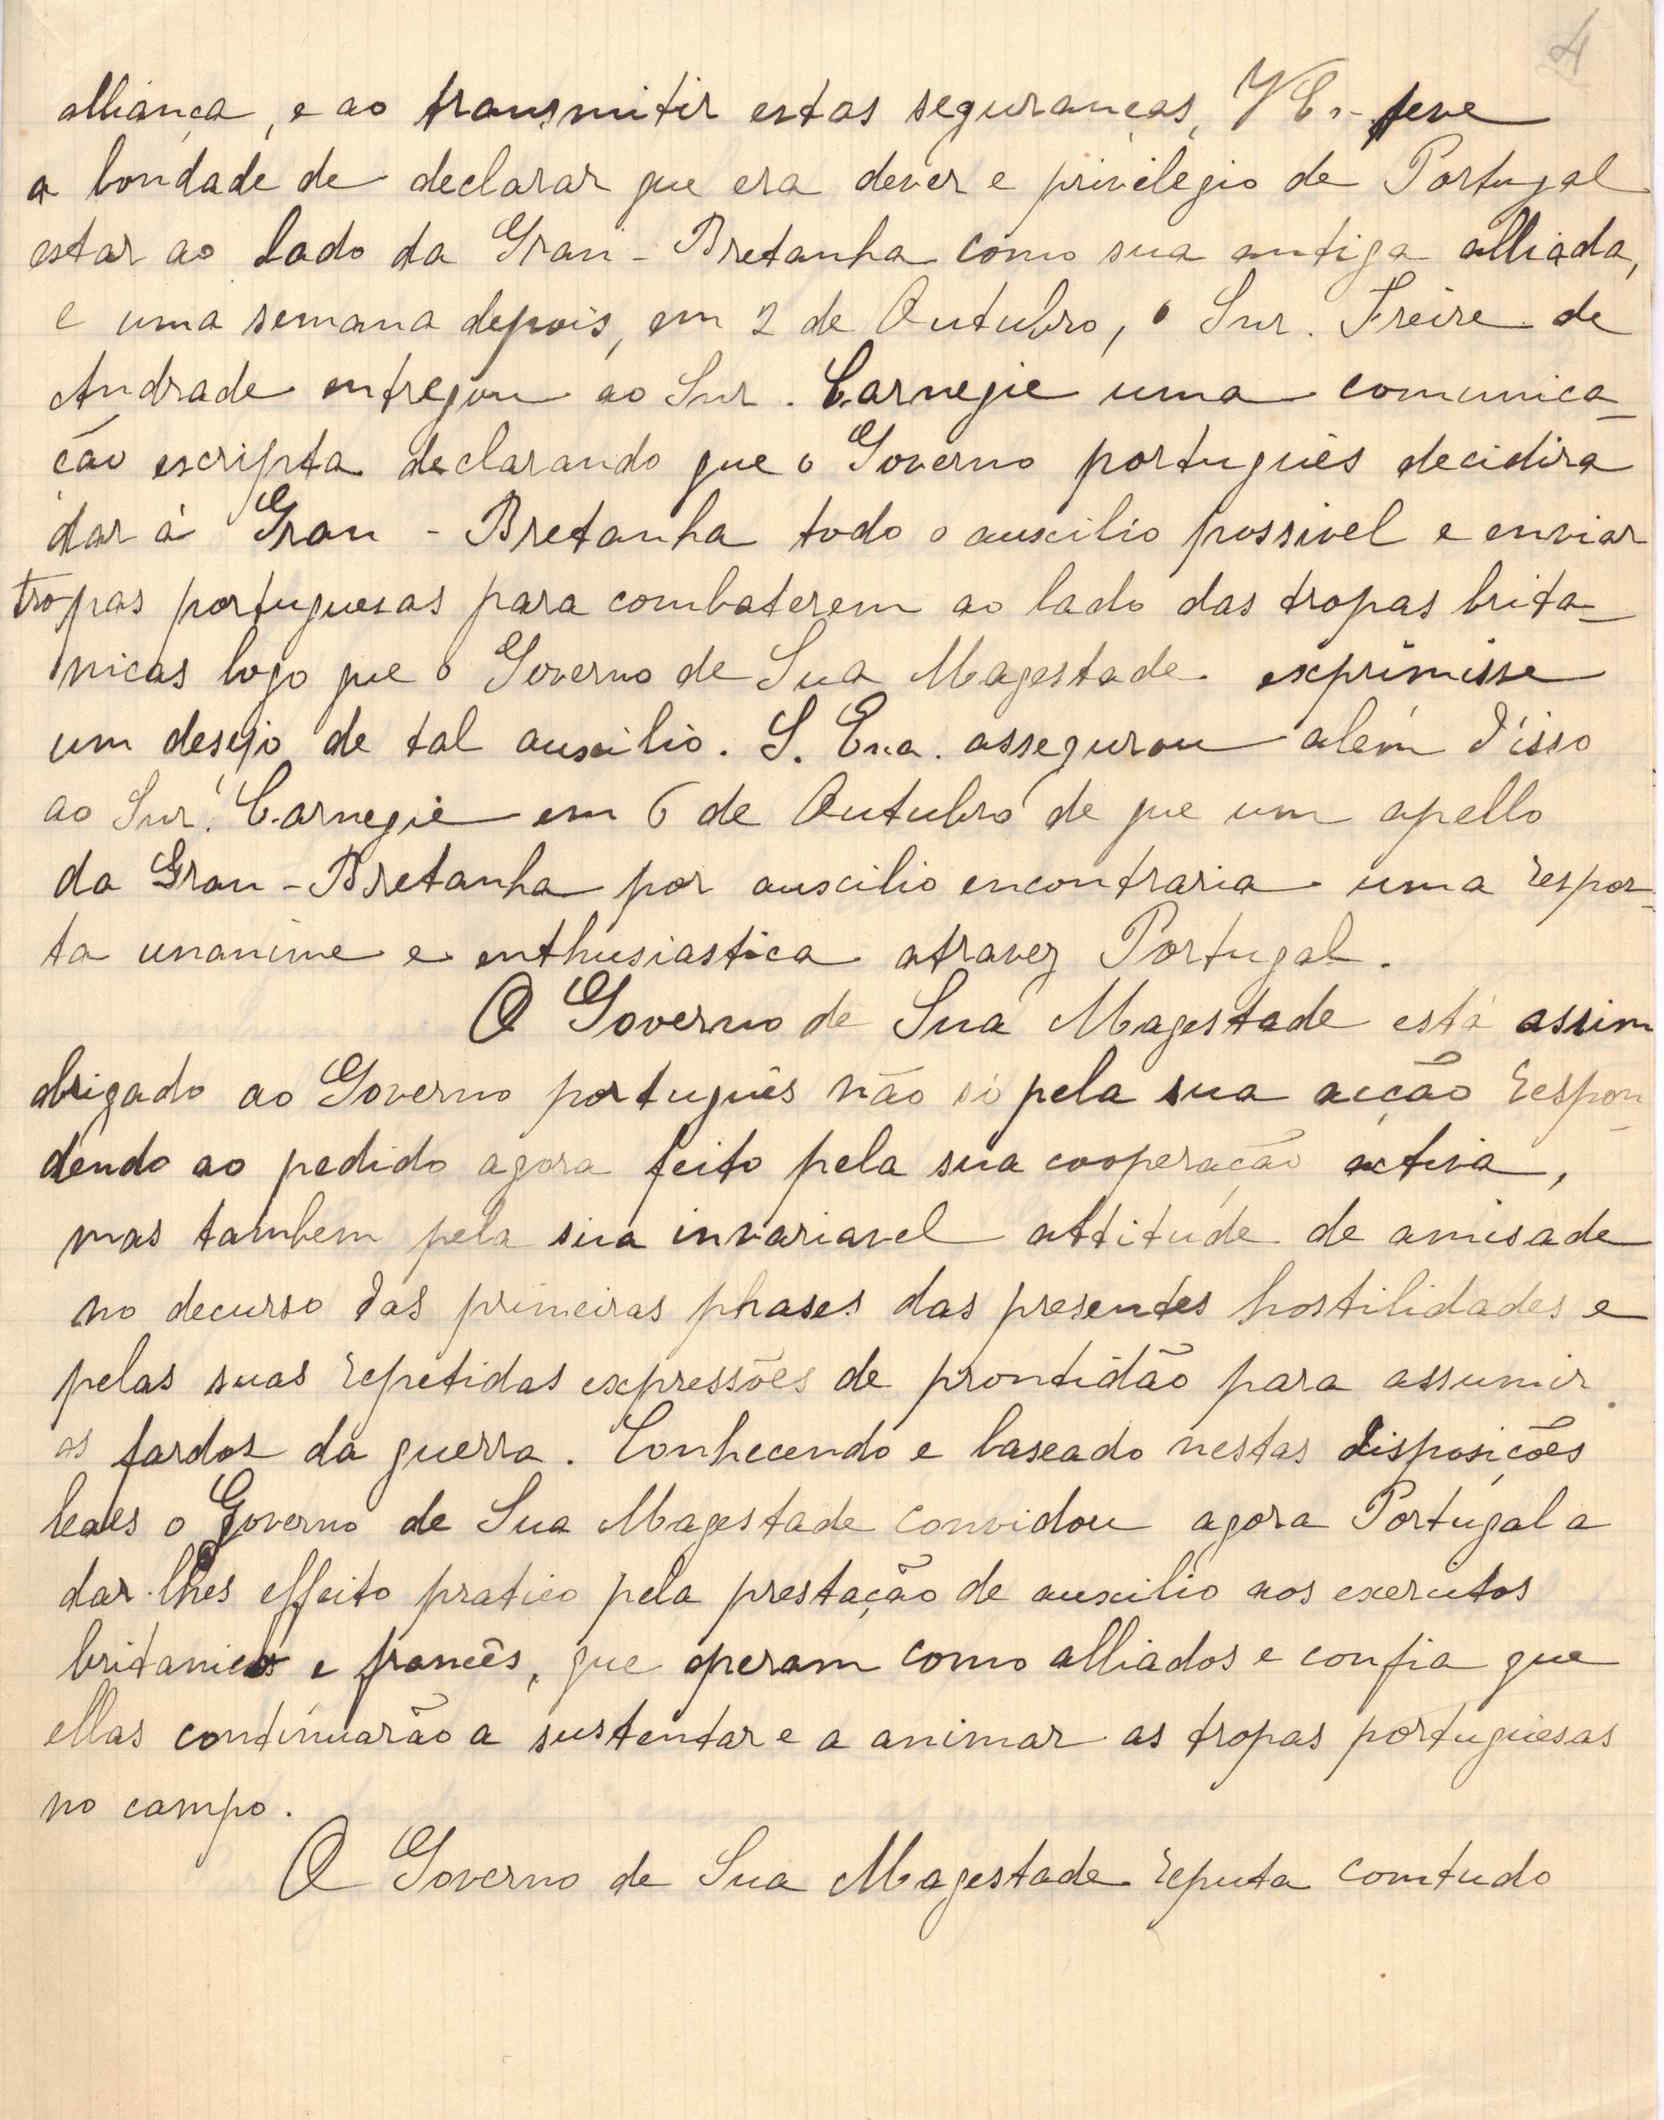 4
alliança, e ao transmitir estas seguranças, V Ex. teve
a bondade de declarar que era dever e privilegio de Portugal
estar ao lado da Gran-Bretanha como sua antiga alliada,
e uma semana depois, em 2 de Outubro, o Snr. Freire de
Andrade entregou ao Snr. Carnegie uma comunica-
ção escripta declarando que o Governo português decidira
dar á Gran-Bretanha todo o auxilio possivel e enviar
tropas portuguesas para combaterem ao lado das tropas brita-
nicas logo que o Governo de Sua Magestade exprimisse
um desejo de tal auxilio. S. Exa. assegurou além d'isso
ao Snr. Carnegie em 6 de Outubro de que um apello
da Gran-Bretanha por auxilio encontraria uma respos-
ta unanime e enthusiastica atravez Portugal.
O Governo de Sua Magestade está assim
obrigado ao Governo português não só pela sua acção respon-
dendo ao pedido agora feito pela sua cooperação activa,
mas tambem pela sua invariavel attitude de amisade
no decurso das primeiras phases das presentes hostilidades e
pelas suas repetidas expressões de prontidão para assumir
os fardos da guerra. Conhecendo e baseado nestas disposições
leaes o Governo de Sua Magestade convidou agora Portugal a
dar-lhes effeito pratico pela prestação de auxilio aos exercitos
britanico e francês, que operam como alliados e confia que
ellas continuarão a sustentar e a animar as tropas portuguesas
no campo.
O Governo de Sua Magestade reputa comtudo